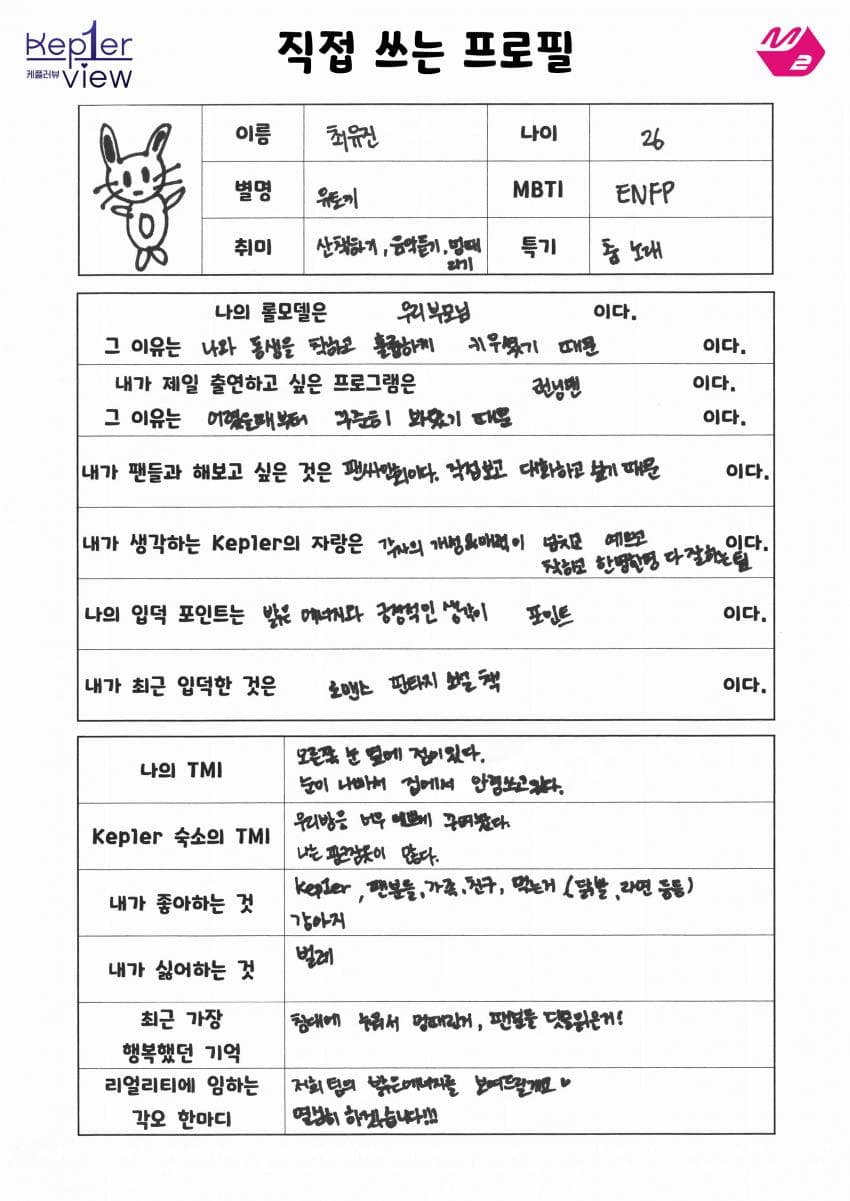 Kep1er
케플러뷰 view
직접 쓰는 프로필
M2
이름 최유진 나이 26
별명 유토끼 MBTI ENFP
취미 산책하기, 음악듣기, 멍때
리기 특기 춤 노래
나의 롤모델은 우리부모님 이다.
그 이유는 나와 동생을 착하고 훌륭하게 키우셨기 때문 이다.
내가 제일 출연하고 싶은 프로그램은 런닝맨 이다.
그 이유는 어렸을때부터 꾸준히 봐왔기 때문 이다.
내가 팬들과 해보고 싶은 것은 팬싸인회이다. 직접보고 대화하고 싶기 때문 이다.
내가 생각하는 Kep1er의 자랑은 각자의 개성&매력이 넘치고 예쁘고 이다.
착하고 한명한명 다 잘하는 팀
나의 입덕 포인트는 밝은 에너지와 긍정적인 생각이 포인트 이다.
내가 최근 입덕한 것은 로맨스 판타지 소설 책 이다.
나의 TMI 오른쪽 눈 옆에 점이있다.
눈이 나빠서 집에서 안경쓰고있다.
Kep1er 숙소의 TMI 우리방을 너무 예쁘게 꾸며놨다.
나는 핑크잠옷이 많다.
내가 좋아하는 것 kep1er, 팬분들, 가족, 친구, 먹는거 (닭발, 라면 등등)
강아지
내가 싫어하는 것 벌레
최근 가장 침대에 누워서 멍때린거, 팬분들 댓글읽은거!
행복했던 기억
리얼리티에 임하는 저희 팀의 밝은에너지를 보여드릴게요♥
각오 한마디 열심히 하겠습니다!!!